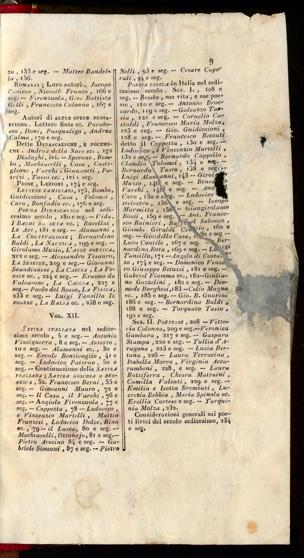 9
20, 153 e seg. — Matteo Bandel-
lo, 156.
ROMANZI; Loro autori, Jacopo
Caviceo, Niccolò Franco, 166 e
seg. — Firenzuola, Gio. Battista
Gilli, Francesco Colonna, 167 e
seg.
Autori di ALTRE OPERE
Lettere finte ec.
so, Doni, Pasqualigo, Andrea
Calmo, 170 e seg.
Dette DIDASCALICHE, E POLEMI-
CHE. Andrea della Nave ec., 172
Dialoghi, ivi. — Sperone, Bem-
bo, Machiavelli, Casa, Casti-
glione, Varchi, Gianotti, Pa-
ruti, Tasso ec., ivi e seg.
PROSE, LEZIONI, 174 e seg.
LETTERE FAMILIARI, 175. Bembo,
Guidiccioni, Casa, Tolomei,
Caro, Bonfadio ec., 176 e seg.
POEMA DIDASCALICO nel sedi-
cesimo secolo, 180 e seg. — Vida,
I BACHI ec. 181 e 182; Rucellai
LE API, 181 e seg. — Alamanni,
LA COLTIVAZIONE; Bernardino
Baldi, LA NAUTICA, 199 e seg. —
Girolamo Muzio, L'ARTE POETICA,
212 e seg. — Alessandro Tesauro,
LA SEREIDE, 219 e seg. — Giovanni
Scandianese, LA CACCIA, LA FE-
NICE ec., 224 e seg. — Erasmo da
Valvasone, LA CACCIA, 227 e
seg. — Paolo del Rosso, LA FISICA,
233 e seg. — Luigi Tansillo IL
PODERE, LA BALIA ec., 238 e seg.
VOL. XII.
SATIRA ITALIANA nel sedice-
simo secolo, 5 e seg. — Antonio
Vinciguerra, 8 e seg. — Ariosto,
10 e seg. — Alamanni ec., 30 e
seg. — Ercole Bentivoglio, 41 e
seg. — Lodovico Paterno, 50 e
seg. — Continuazione della SATIRA
ITALIANA; SATIRA GIOCOSA O BER-
NESCA, 52. Francesco Berni, 55 e
seg. — Giovanni Mauro, 72 e
seg. — Il Casa, il Varchi, 76 e
seg. — Angiolo Firenzuola, 77 e
seg. — Coppetta, 78 — Lodovico,
e Vincenzo Martelli, Mattio
Franzesi, Lodovico Dolce, Bino
ec., 79 — il Lasca, 80 e seg. —
Machiavelli, Ottonajo, 81 e seg. —
Pietro Aretino 84 e seg. — Ga-
briele Simeoni, 87 e seg. — Pietro
Nelli, 93 e seg. — Cesare Capo-
rali, 94 e seg.
POESIA LIRICA in Italia nel sedi-
cesimo secolo. Sez. I., 108 e
seg. — Bembo, sua vita, e sue poe-
sie, 110 e seg. — Antonio Broc-
cardo, 119 e seg. — Galeazzo Tar-
sia, 121 e seg. — Cornelio Ca-
staldi, Francesco Maria Molza,
123 e seg. — Gio. Guidiccioni,
128 e seg. — Francesco Beccuti
detto il Coppetta, 130 e seg. —
Lodovico, e Vincenzo Martelli,
132 e seg. — Bernardo Cappello,
Tolomei, 134 e seg. —
Bernardo Tasso, 138 e seg. —
Luigi Alamanni, 143 —
Muzio, e seg. —
Varchi,
Caro, 150
seg. — Jacopo
Marmitta, 158 — Giangirolamo
Rossi, 159
Ant. France-
sco Rainieri, Raffael Salvago,
Giamb. Giraldi e
seg. — Giulio Camillo,
Luca Contile, 167 e seg.
nardino Rota, 169 e seg. — Luigi
Tansillo, 171 — Angelo di Costan-
zo, 174 e seg. — Domenico Venie-
ro Giuseppe Betussi, 181 e seg. —
Gabriel Fiamma ec., 182 — Giulia-
no Gosalini, 182 e seg. — Dio-
mede Borghesi, 183 — Celio Magno
ec., 185 e seg. — Gio. B. Guarini
186 e seg. — Bernardino Baldi
188 e seg. — Torquato Tasso,
191 e seg.
Sez. II. POETESSE, 208 — Vitto-
ria Colonna, 209 e seg. — Veronica
Gambara, 217 e seg. — Gaspara
Stampa, 220 e seg. — Tullia d'A-
ragona, 223 e seg. — Lucia Ber-
tana, 226 — Laura Terracina,
Isabella Morra, Virginia Accu-
ramboni, 228, e seg. — Laura
Battiferra, Chiara Matraini,
Camilla Valenti, 229 e seg. —
Emilia e Isotta Brembati, Lu-
crezia Bebbia, Maria Spinola ec.
Ersilia Cortese e seg. — Tarqui-
nia Molza, 232.
Considerazioni generali sui poe-
ti lirici del secolo sedicesimo, 234
e seg.